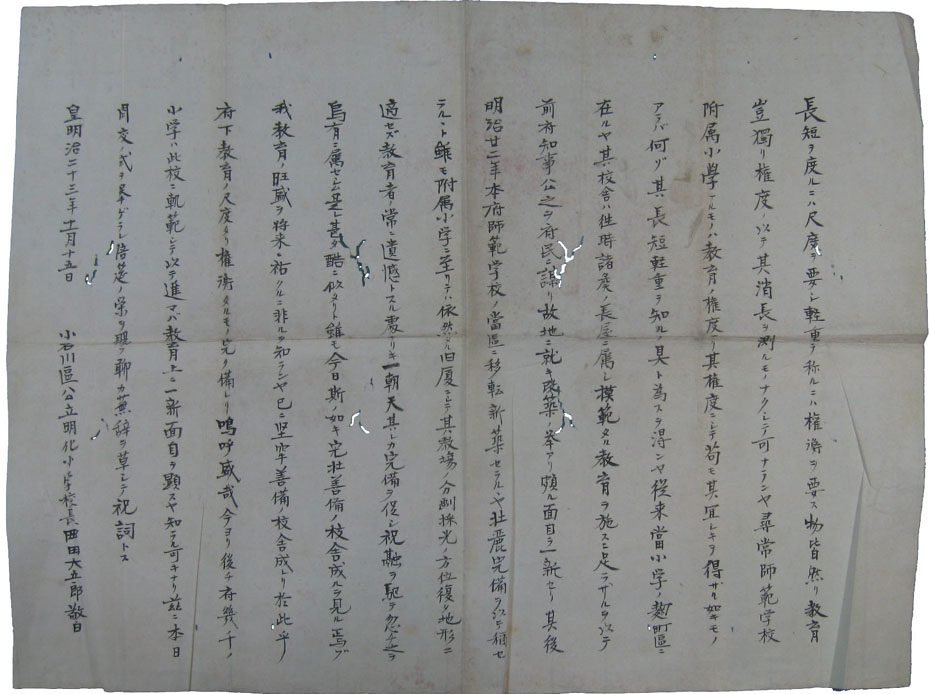 長短ヲ度ルニハ尺度ヲ要シ軽重ヲ称ルニハ権衡ヲ要ス物皆然リ教育
豈獨リ権度ノ以テ其消長ヲ測ルモノナクシテ可ナランヤ尋常師範学校
附属小學ナルモノハ教育ノ権度ナリ其権度ニシテ苟モ其宜シキヲ得ザル如キモノ
アラバ何ゾ其長短軽重ヲ知ルノ具ト為スヲ得ンヤ従来當小学ノ麹町區ニ
在ルヤ其校舎ハ往時諸侯ノ長屋ニ属シ模範タル教育ヲ施スニ足ラザルヲ以テ
前府知事公之ヲ府民ニ謀リ故地ニ就キ改築ノ挙アリ頗ル面目ヲ一新セリ其後
明治廿二年本府師範学校ノ當區ニ移転新築セラルヽヤ壮麗完備ヲ以テ称セ
ラルヽト雖モ附属小学ニ至リテハ依然タル旧厦ニシテ其教場ノ分割採光ノ方位復タ地形ニ
適セズ教育者ノ常ニ遺憾トスル處ナリキ一朝天其レカ完備ヲ促シ祝融ヲ駆テ忽之ヲ
烏有ニ属セシム是レ甚タ酷ニ似タリト雖モ今日斯ノ如キ完壮善備ノ校舎成ルヲ見ル焉ゾ
我教育ノ旺盛ヲ将来ニ祐クルニ非ルヲ知ランヤ已ニ堅牢善備ノ校舎成レリ於此乎
府下教育ノ尺度タリ権衡タルモノ完ク備レリ嗚呼盛哉今ヨリ後チ府幾千ノ
小学ハ此校ニ軌範シテ以テ進マバ教育上ニ一新面目ヲ顕スヤ知ル可キナリ茲ニ本日
開校ノ式ヲ挙ゲラレ陪筵ノ栄ヲ賜フ聊カ蕪辞ヲ草シテ祝詞トス
皇明治二十三年十一月十五日
小石川區公立明化小学校長 田大五郎敬白